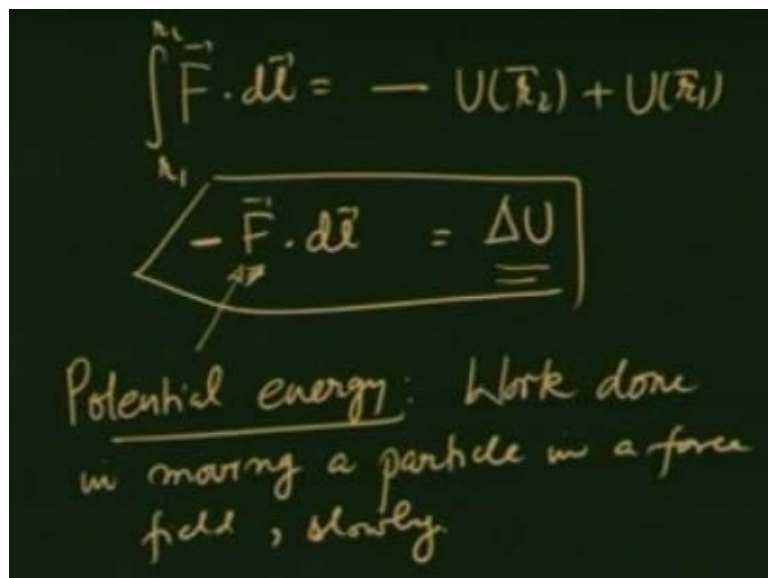 ∫_{r₁}^{r₂} F⃗ · dl⃗ = − U(r̄₂) + U(r̄₁)
− F⃗ · dl⃗ = ΔU
Potential energy: Work done
in moving a particle in a force
field, slowly.